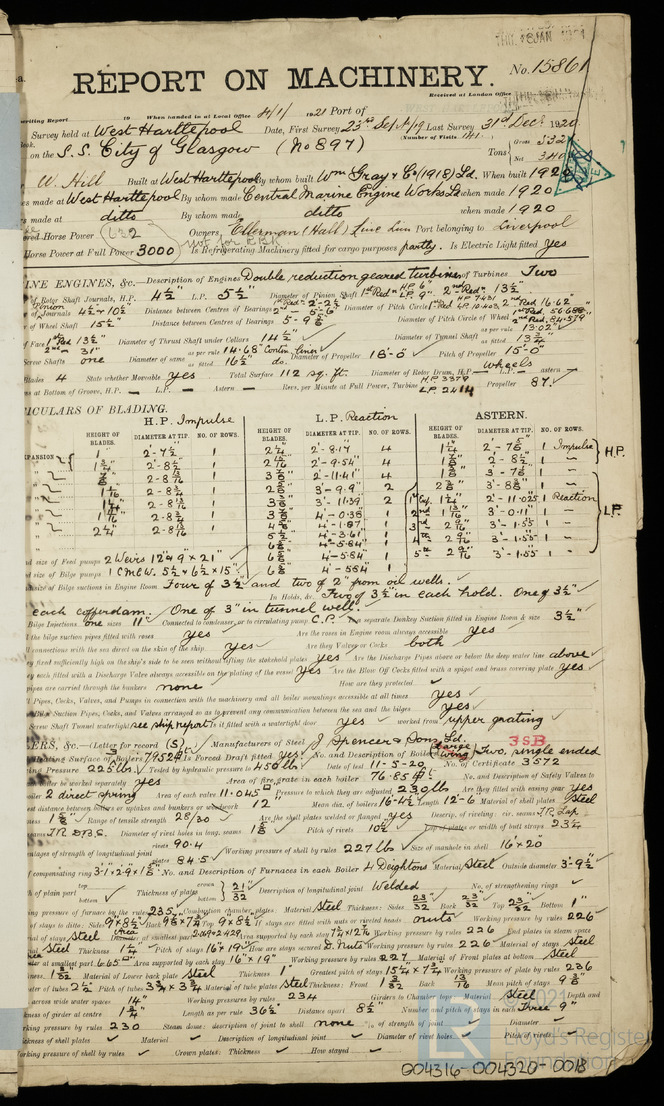 THU. 6 JAN 1921
REPORT ON MACHINERY.
No. 15861
Received at London Office
Writing Report 19 When handed in at Local Office 4/1/1921 Port of
Survey held at West Hartlepool Date, First Survey 23rd Sept/19 Last Survey 31st Decr 1920
(Number of Visits 141)
on the S.S. City of Glasgow (No 897) Tons Gross Net
W. Hill Built at West Hartlepool By whom built Wm Gray & Co (1918) Ld. When built 1920
es made at West Hartlepool By whom made Central Marine Engine Works Ld when made 1920
rs made at ditto By whom made ditto when made 1920
Horse Power Owners Ellerman (Hall) Line Lim Port belonging to Liverpool
Horse Power at Full Power 3000 Is Refrigerating Machinery fitted for cargo purposes partly. Is Electric Light fitted yes
INE ENGINES, &c.—Description of Engines Double reduction geared turbines No. of Turbines Two
of Rotor Shaft Journals, H.P. 4½" L.P. 5½" Diameter of Pinion Shaft 1st Red. H.P. 6" L.P. 9" 2nd Red. 13½"
Journals 4½ & 10½ Distance between Centres of Bearings Diameter of Pitch Circle
of Wheel Shaft 15½" Distance between Centres of Bearings 5-9 Diameter of Pitch Circle of Wheel
of Face 1st Red 13½" 2nd " 31" Diameter of Thrust Shaft under Collars 14½" Diameter of Tunnel Shaft as per rule 13.02" as fitted
Screw Shafts one Diameter of same as per rule 14.68" as fitted 16½" Contin. Liner do. Diameter of Propeller 18'-0" Pitch of Propeller 15'-0"
Blades 4 State whether Moveable yes Total Surface 112 sq. ft. Diameter of Rotor Drum, H.P. Wheels L.P. — astern —
ns at Bottom of Groove, H.P. — L.P. — Astern — Revs. per Minute at Full Power, Turbine H.P. 3379 L.P. 2414 Propeller 87.
ICULARS OF BLADING.
H.P. Impulse L.P. Reaction ASTERN.
HEIGHT OF BLADES. DIAMETER AT TIP. NO. OF ROWS. HEIGHT OF BLADES. DIAMETER AT TIP. NO. OF ROWS. HEIGHT OF BLADES. DIAMETER AT TIP. NO. OF ROWS.
EXPANSION 1" 2'-7½ 1 2¼" 2'-8.17 4 1¼" 2'-7⅝" 1 Impulse H.P.
2'-8½ 1 2'-9.54" 4 2'-8½ 1 "
1 2'-11.41" 4 3'-7⅝ 1 "
2'-8½ 1 3'-9.9" 2 3'-8⅝" 1 "
1 3'-11.39 2 1st Exp. 1¼" 2'-11.025 1 Reaction L.P.
2'-8½ 1 4'-0.38" 1 2nd " 3'-0.11" 1 "
1 4'-1.87 1 3rd " 3'-1.55 1 "
4'-3.61" 1 4th " 3'-1.55" 1 "
4'-5.84" 1 5th " 3'-1.55 1 "
4'-5.84 1
4'-5.84" 1
nd size of Feed pumps 2 Weirs 12" & 9" x 21"
nd size of Bilge pumps 1 C.M.E.W. 5½ & 6½ x 15"
size of Bilge suctions in Engine Room Four of 3½" and two of 2" from oil wells.
In Holds, &c. Two of 3½" in each hold. One of 3½"
each cofferdam. One of 3" in tunnel well.
Bilge Injections one sizes 11" Connected to condenser, or to circulating pump C.P. Is a separate Donkey Suction fitted in Engine Room & size 3½"
l the bilge suction pipes fitted with roses yes Are the roses in Engine room always accessible yes
connections with the sea direct on the skin of the ship yes Are they Valves or Cocks both
y fixed sufficiently high on the ship's side to be seen without lifting the stokehold plates yes Are the Discharge Pipes above or below the deep water line above
y each fitted with a Discharge Valve always accessible on the plating of the vessel yes Are the Blow Off Cocks fitted with a spigot and brass covering plate yes
pipes are carried through the bunkers none How are they protected
Pipes, Cocks, Valves, and Pumps in connection with the machinery and all boiler mountings accessible at all times yes
Bilge Suction Pipes, Cocks, and Valves arranged so as to prevent any communication between the sea and the bilges yes
Screw Shaft Tunnel watertight see ship report Is it fitted with a watertight door yes worked from upper grating
ERS, &c.—(Letter for record (S) ) Manufacturers of Steel J. Spencer & Sons Ld.
3 SB
Heating Surface of Boilers Is Forced Draft fitted yes No. and Description of Boilers (Large) (wing) Two, single ended
ing Pressure 225 lbs. Tested by hydraulic pressure to 450 lbs Date of test 11-5-20 No. of Certificate 3572
iler be worked separately yes Area of fire grate in each boiler 76.85 No. and Description of Safety Valves to
iler 2 direct spring Area of each valve 11.045 Pressure to which they are adjusted 230 lbs Are they fitted with easing gear yes
est distance between boilers or uptakes and bunkers or woodwork 12" Mean dia. of boilers 16'-4½" Length 12'-6 Material of shell plates Steel
Range of tensile strength 28/30 Are the shell plates welded or flanged yes Descrip. of riveting: cir. seams T.R. Lap
eams T.R. D.B.S. Diameter of rivet holes in long. seams Pitch of rivets 10½" Lap of plates or width of butt straps 23¼
entages of strength of longitudinal joint rivets 90.4 plates 84.5 Working pressure of shell by rules 227 lbs Size of manhole in shell 16" x 20"
f compensating ring No. and Description of Furnaces in each Boiler 4 Deightons Material Steel Outside diameter 3'-9½"
h of plain part top bottom Thickness of plates crown bottom 21/32" Description of longitudinal joint Welded No. of strengthening rings
ing pressure of furnace by the rules 235 Combustion chamber plates: Material Steel Thickness: Sides 23/32" Back 23/32" Top 23/32" Bottom 1"
of stays to ditto: Sides Back Top If stays are fitted with nuts or riveted heads nuts Working pressure by rules 226
al of stays Steel Area supported by each stay Working pressure by rules 226 End plates in steam space
Steel Thickness Pitch of stays 16" x 19" How are stays secured D. Nuts Working pressure by rules 226 Material of stays Steel
at smallest part 6.65 Area supported by each stay 16" x 19" Working pressure by rules 227 Material of Front plates at bottom Steel
kness Material of Lower back plate Steel Thickness 1" Greatest pitch of stays Working pressure of plate by rules 236
ter of tubes 2½" Pitch of tubes 3¾ x 3¾ Material of tube plates Steel Thickness: Front Back Mean pitch of stays
across wide water spaces 14" Working pressures by rules 234 Girders to Chamber tops: Material Steel Depth and
ckness of girder at centre Length as per rule Distance apart 8½" Number and pitch of stays in each Three 9"
orking pressure by rules 230 Steam dome: description of joint to shell none % of strength of joint Diameter
ickness of shell plates Material Description of longitudinal joint Diameter of rivet holes Pitch of rivets
orking pressure of shell by rules Crown plates: Thickness How stayed
© 2021
Lloyd's Register
Foundation
004316-004320-0018